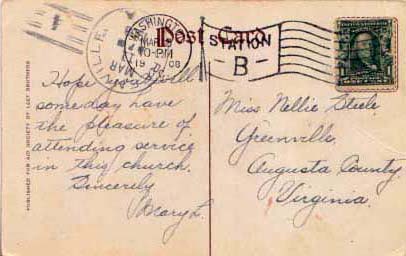 Post Card
WASHINGTON
MAR
10-PM
19 08
STATION
B
VILLE
MAR
Hope you will
someday have
the pleasure of
attending service
in this church.
Sincerely
Mary L.
Miss Nellie Steele
Greenville,
Augusta County
Virginia.
PUBLISHED FOR AID SOCIETY BY